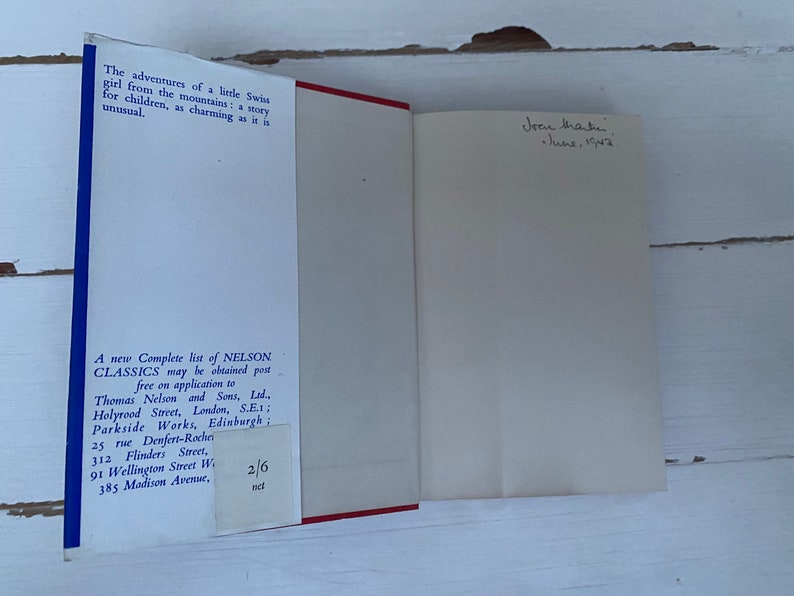 The adventures of a little Swiss
girl from the mountains : a story
for children, as charming as it is
unusual.
A new Complete list of NELSON
CLASSICS may be obtained post
free on application to
Thomas Nelson and Sons, Ltd.,
Holyrood Street, London, S.E.1 ;
Parkside Works, Edinburgh ;
25 rue Denfert-Rocher
312 Flinders Street,
91 Wellington Street W
385 Madison Avenue,
2/6
net
Joan Martin,
June, 1942